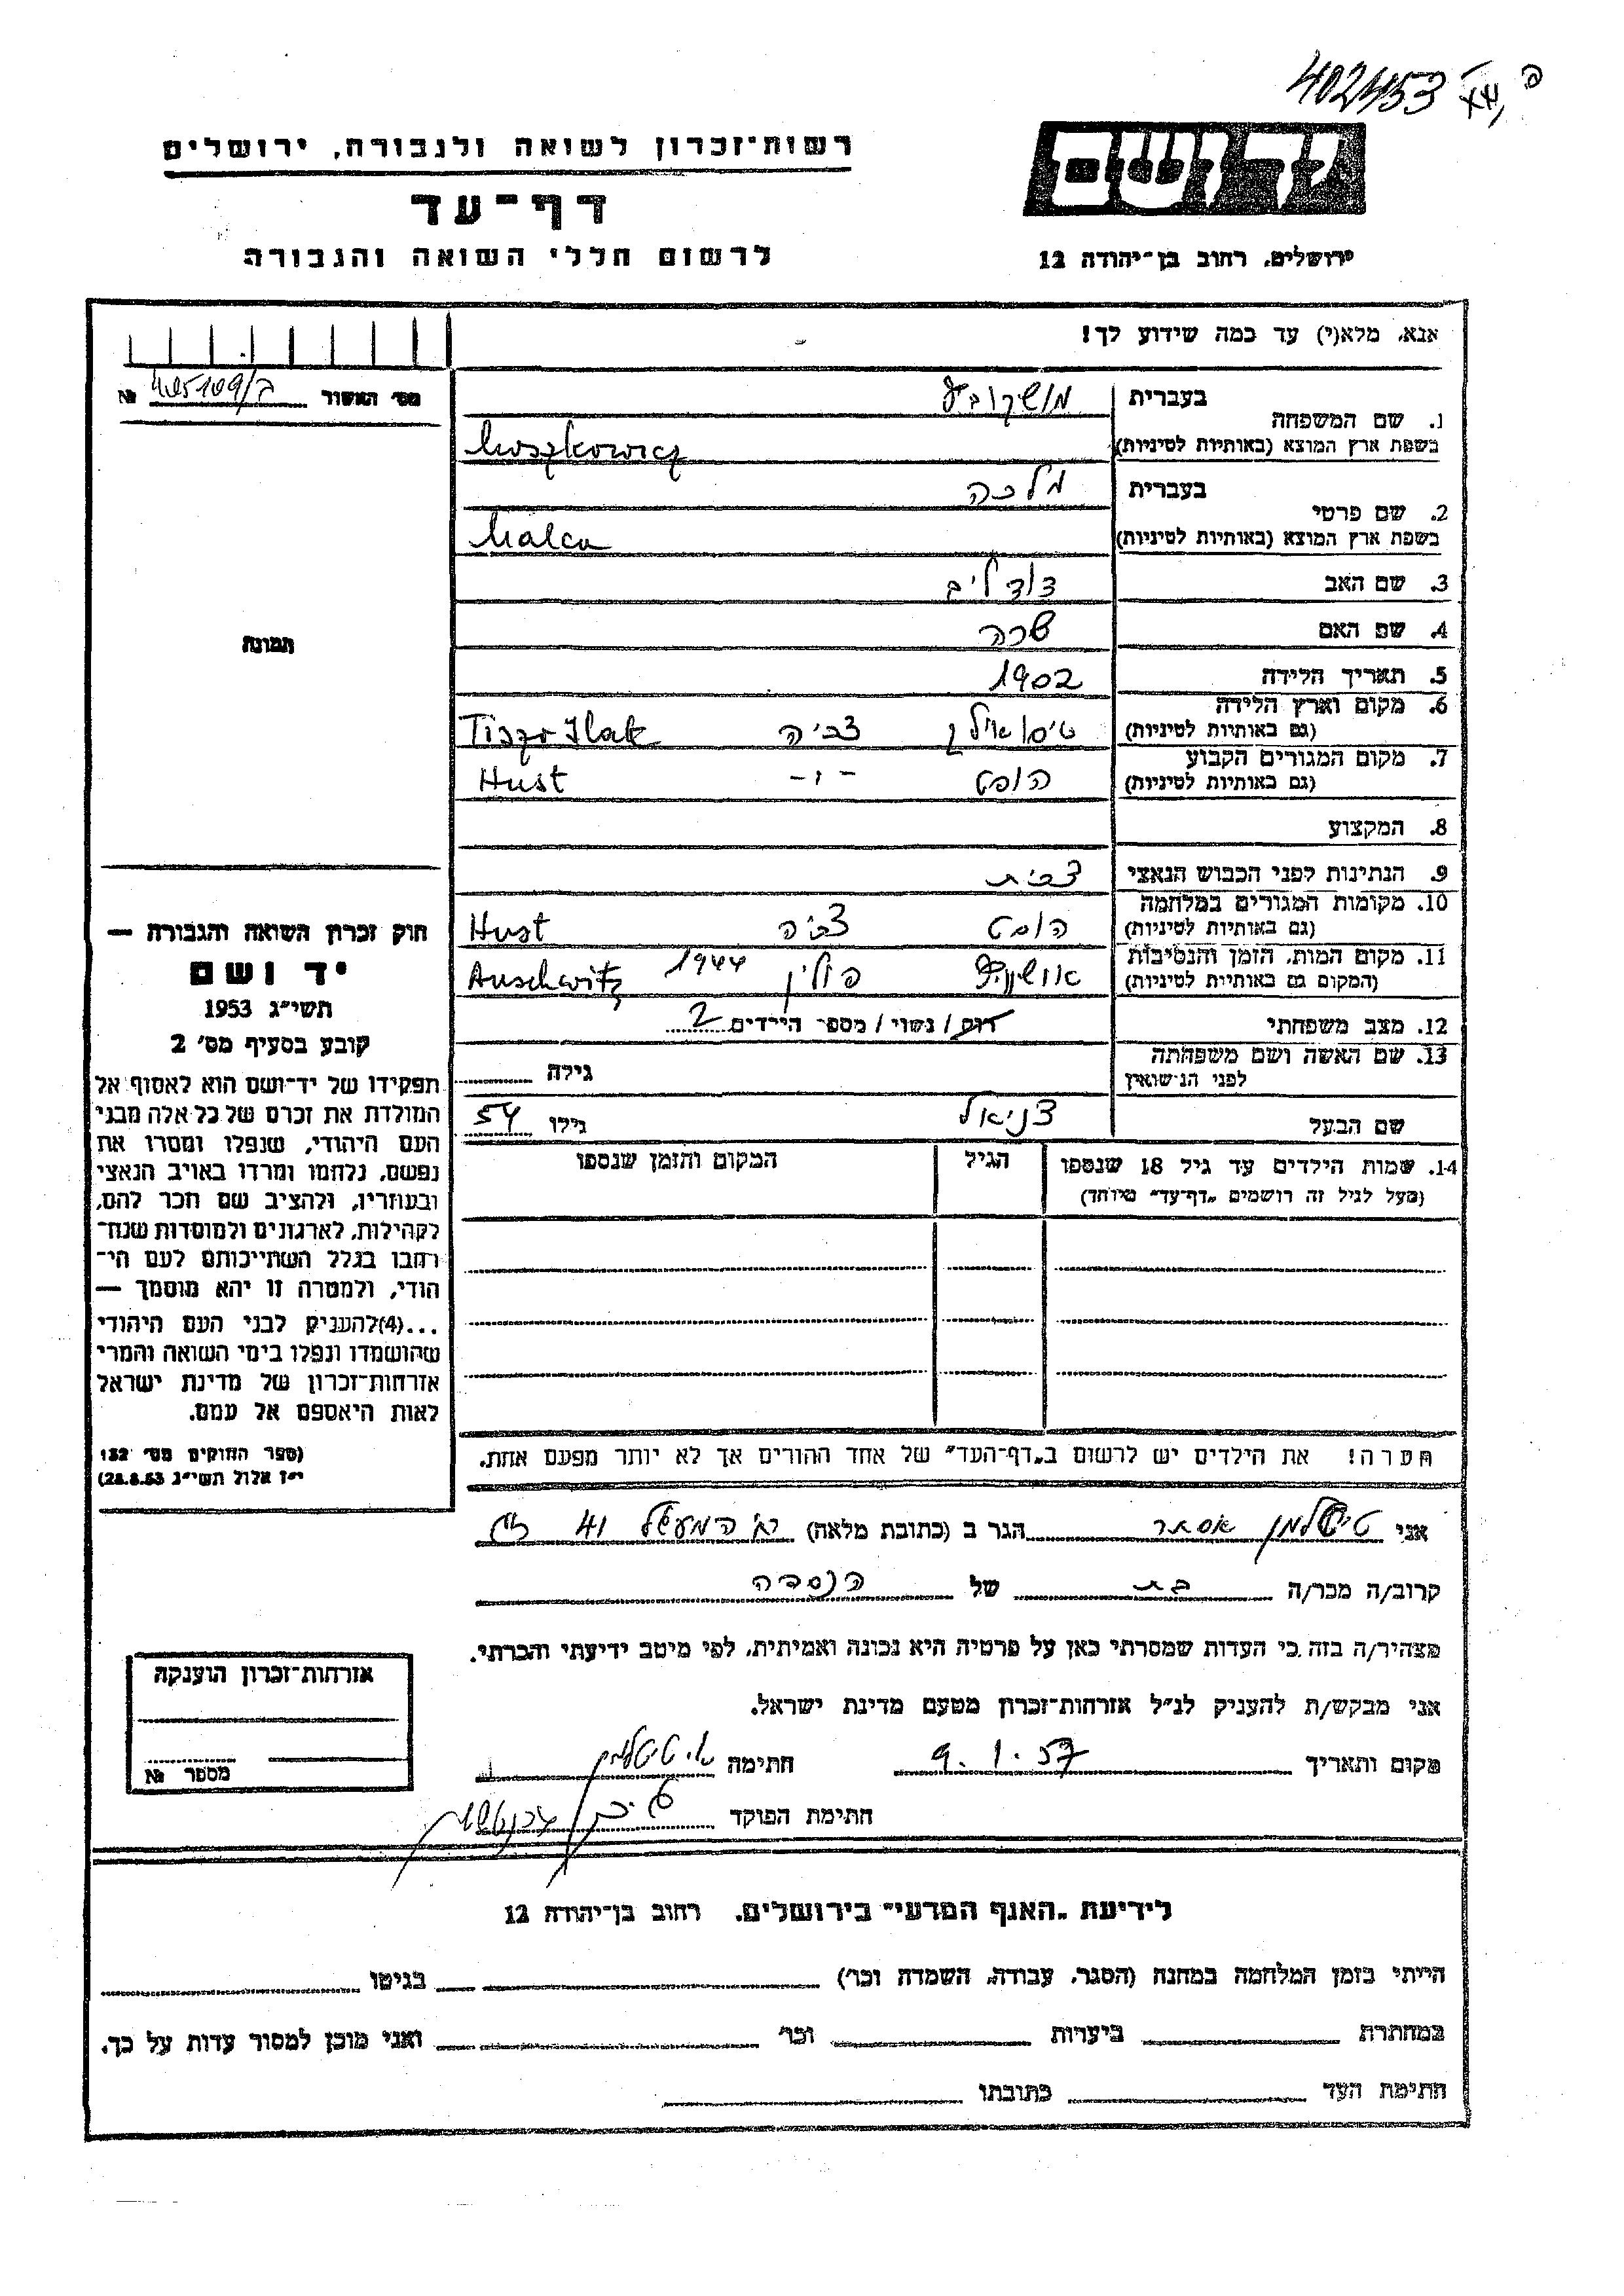 402453
רשות־זכרון לשואה ולגבורה, ירושלים
דף־עד
לרשום חללי השואה והגבורה
ירושלים, רחוב בן־יהודה 12
אנא, מלא(י) עד כמה שידוע לך!
מס׳ האשור №
1. שם המשפחה
בעברית מושקוביץ
בשפת ארץ המוצא (באותיות לטיניות) Muszkowicz
2. שם פרטי
בעברית מלכה
בשפת ארץ המוצא (באותיות לטיניות) Malca
3. שם האב דוד ליב
4. שם האם שרה
5. תאריך הלידה 1902
6. מקום וארץ הלידה (גם באותיות לטיניות) צכיה
7. מקום המגורים הקבוע (גם באותיות לטיניות) הוסט -״- Hust
8. המקצוע
9. הנתינות לפני הכבוש הנאצי צכית
10. מקומות המגורים במלחמה (גם באותיות לטיניות) הוסט צכיה Hust
11. מקום המות, הזמן והנסיבות (המקום גם באותיות לטיניות) אושויץ פולין 1944 Auschwitz
12. מצב משפחתי רווק / נשוי / מספר הילדים 2
13. שם האשה ושם משפחתה לפני הנישואין גילה
שם הבעל דניאל גילו 54
14. שמות הילדים עד גיל 18 שנספו
(מעל לגיל זה רושמים „דף־עד״ מיוחד)
הגיל
המקום והזמן שנספו
הערה! את הילדים יש לרשום ב„דף־העד״ של אחד ההורים אך לא יותר מפעם אחת.
תמונה
חוק זכרון השואה והגבורה —
יד ושם
תשי״ג 1953
קובע בסעיף מס׳ 2
תפקידו של יד־ושם הוא לאסוף אל
המולדת את זכרם של כל אלה מבני
העם היהודי, שנפלו ומסרו את
נפשם, נלחמו ומרדו באויב הנאצי
ובעוזריו, ולהציב שם וזכר להם,
לקהילות, לארגונים ולמוסדות שנח־
רבו בגלל השתייכותם לעם הי־
הודי, ולמטרה זו יהא מוסמך —
...(4)להעניק לבני העם היהודי
שהושמדו ונפלו בימי השואה והמרי
אזרחות־זכרון של מדינת ישראל
לאות היאספם אל עמם.
(ספר החוקים מס׳ 132
י״ז אלול תשי״ג 28.8.53)
אני טישלמן אסתר הגר ב (כתובת מלאה) 41
קרוב/ה מכר/ה בת של הנספה
מצהיר/ה בזה כי העדות שמסרתי כאן על פרטיה היא נכונה ואמיתית, לפי מיטב ידיעתי והכרתי.
אני מבקש/ת להעניק לנ״ל אזרחות־זכרון מטעם מדינת ישראל.
מקום ותאריך 9.1.57 חתימה א. טישלמן
חתימת הפוקד
אזרחות־זכרון הוענקה
מספר №
לידיעת „האגף המדעי״ בירושלים, רחוב בן־יהודה 12
הייתי בזמן המלחמה במחנה (הסגר, עבודה, השמדה וכו׳) בגיטו
במחתרת ביערות וכו׳ ואני מוכן למסור עדות על כך.
חתימת העד כתובתו